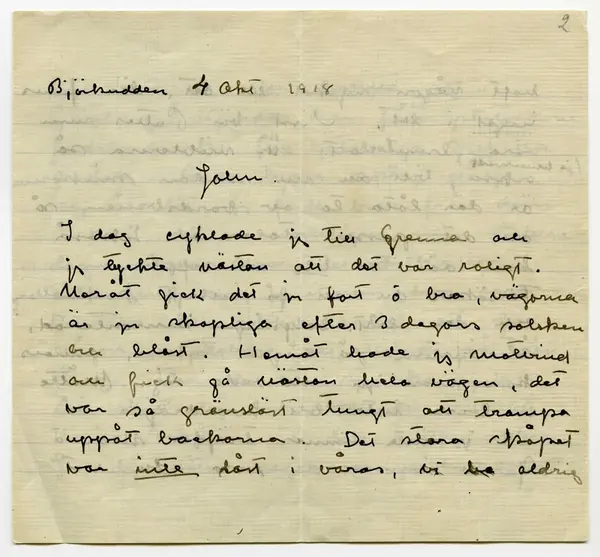 2
Björkudden 4 Okt 1918
John.
I dag cyklade jg till Grenna och
jg tyckte nästan att det var roligt.
Noråt gick det ju fort ô bra, vägarna
är ju skapliga efter 3 dagars solsken
och blåst. Hemåt hade jg motvind
och fick gå nästan hela vägen, det
var så gränslöst tungt att trampa
uppåt backarna. Det stora skåpet
var inte låst i våras, vi aldrig